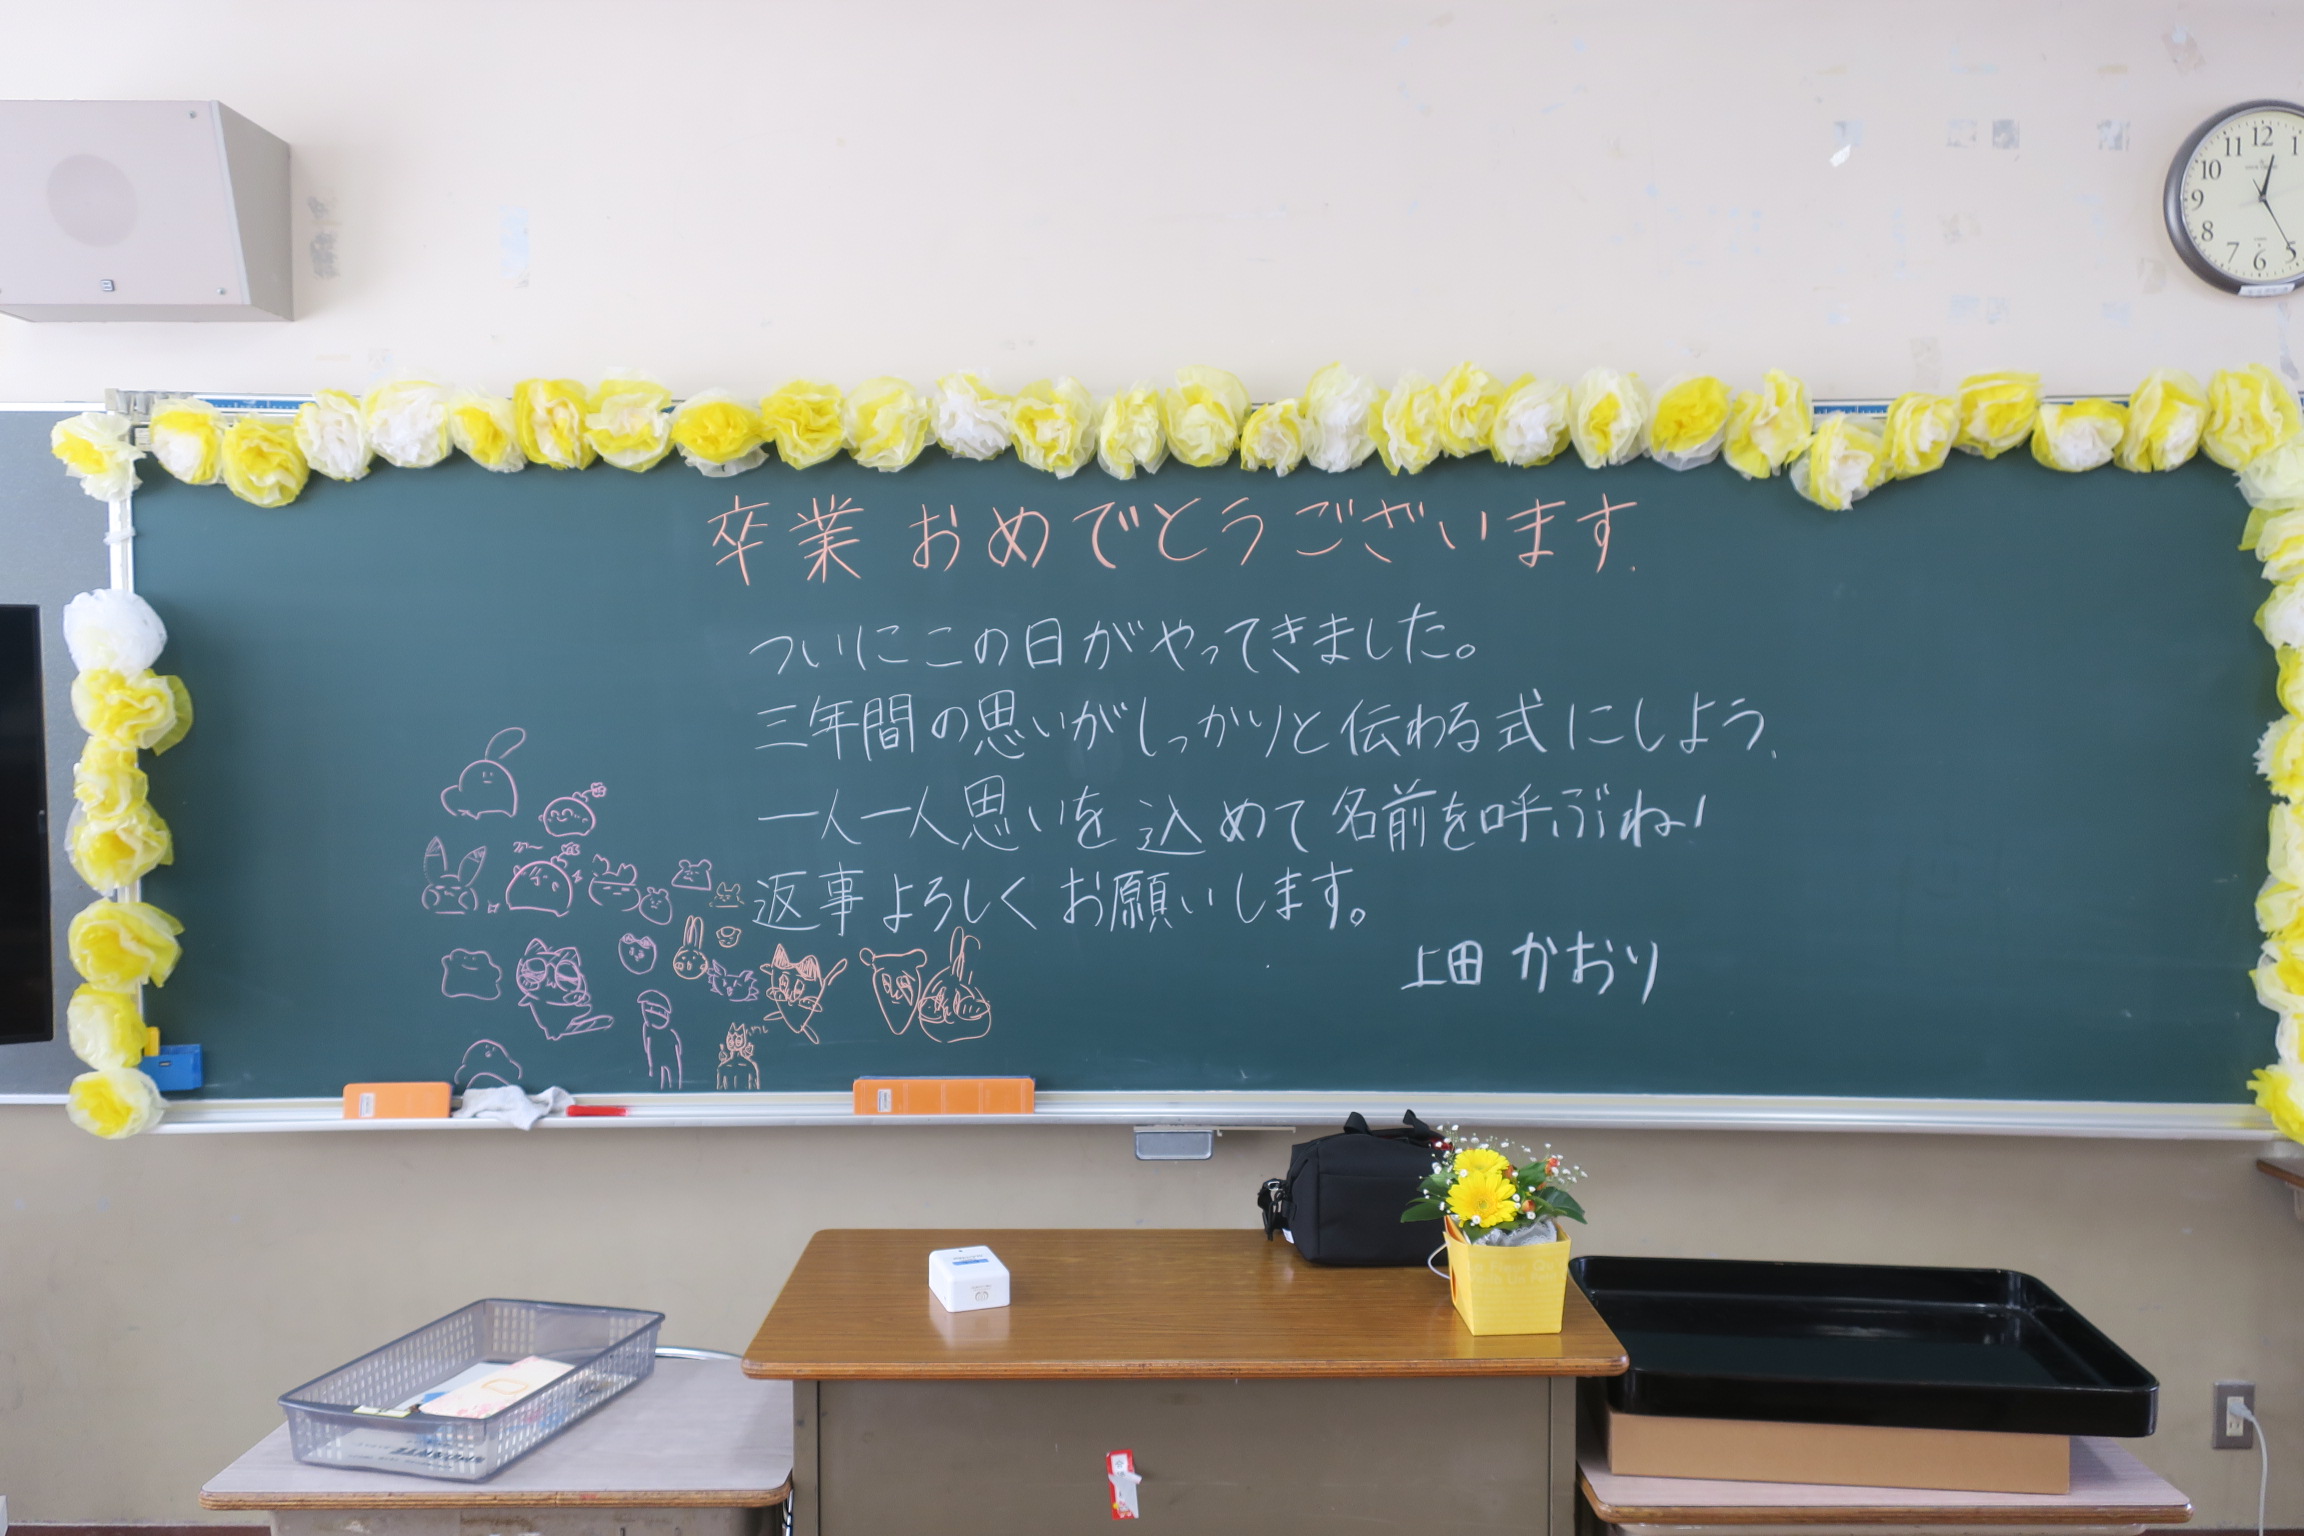 卒業おめでとうございます.
ついにこの日がやってきました。
三年間の思いがしっかりと伝わる式にしよう.
一人一人思いを込めて名前を呼ぶね!
返事よろしくお願いします。
上田 かおり
12
1
11
10
9
8
7
6
5